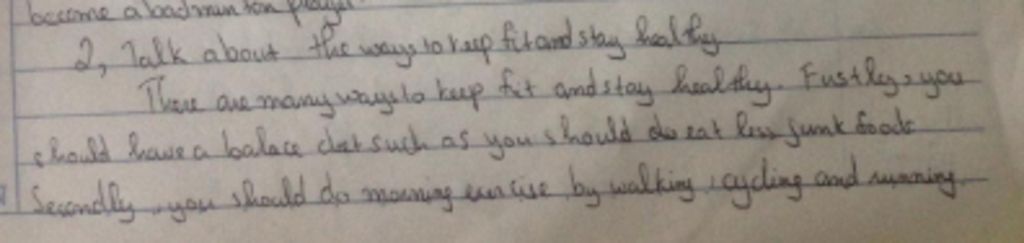 become a badmin ton player
2, Talk about the ways to keep fit and stay healthy
There are many ways to keep fit and stay healthy. Fustley, you
should have a balace diet such as you should do eat less junk foods
Secondly, you should do morning exercise by walking, cycling and running.